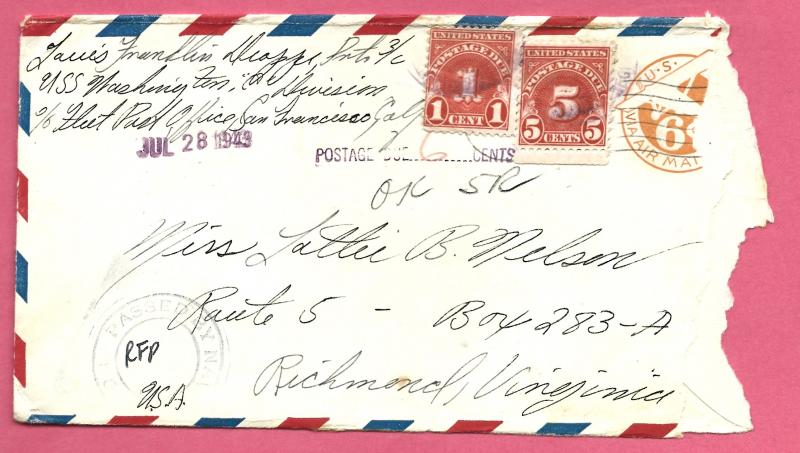 Louis Franklin Drapp, Prtr 3/c
USS Washington, "A" Division
c/o Fleet Post Office, San Francisco, Calf
JUL 28 1943
UNITED STATES
POSTAGE DUE
1
1 CENT 1
UNITED STATES
POSTAGE DUE
5
5 CENTS 5
U.S.
6
VIA AIR MAI
POSTAGE DUE 6 CENTS
OK SR
Miss Lottie B. Nelson
Route 5 - Box 283-A
Richmond, Virginia
PASSED BY
RFP
U.S.A.